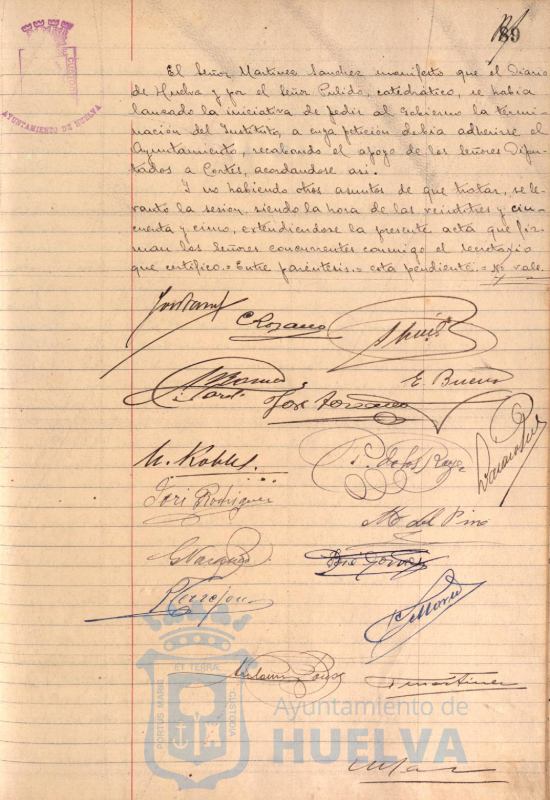 89
AYUNTAMIENTO DE HUELVA
El Señor Martinez Sanchez manifesto que el Diario
de Huelva y por el Señor Pulido, catedrático, se habia
lanzado la iniciativa de pedir al Gobierno la termi-
nación del Instituto, a cuya peticion debia adherirse el
Ayuntamiento, recabando el apoyo de los Señores Dipu-
tados a Cortés, acordandose asi.
Y no habiendo otros asuntos de que tratar, se le-
vantó la sesion, siendo la hora de las veintitres y cin-
cuenta y cinco, extendiendose la presente acta que fir-
man los Señores concurrentes conmigo el secretario
que certifico.= Entre paréntesis.= esta pendiente.= No vale.
E. Bueno
José
M. Robles.
P. de los Reyes
José Rodriguez
M. del Pino
José Gómez
Martinez
ET TERRAE
PORTUS MARIS
CUSTODIA
Ayuntamiento de
HUELVA